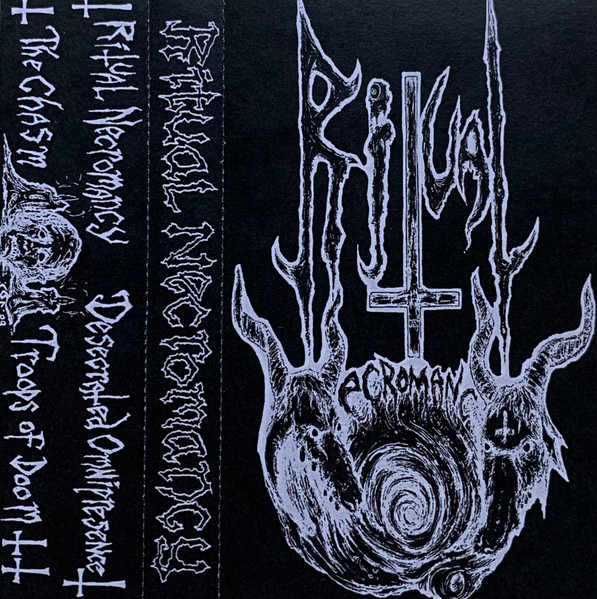 Ritual Necromancy Desecrated Omnipresence
The Chasm Troops of Doom
Ritual Necromancy
Ritual
Necromancy